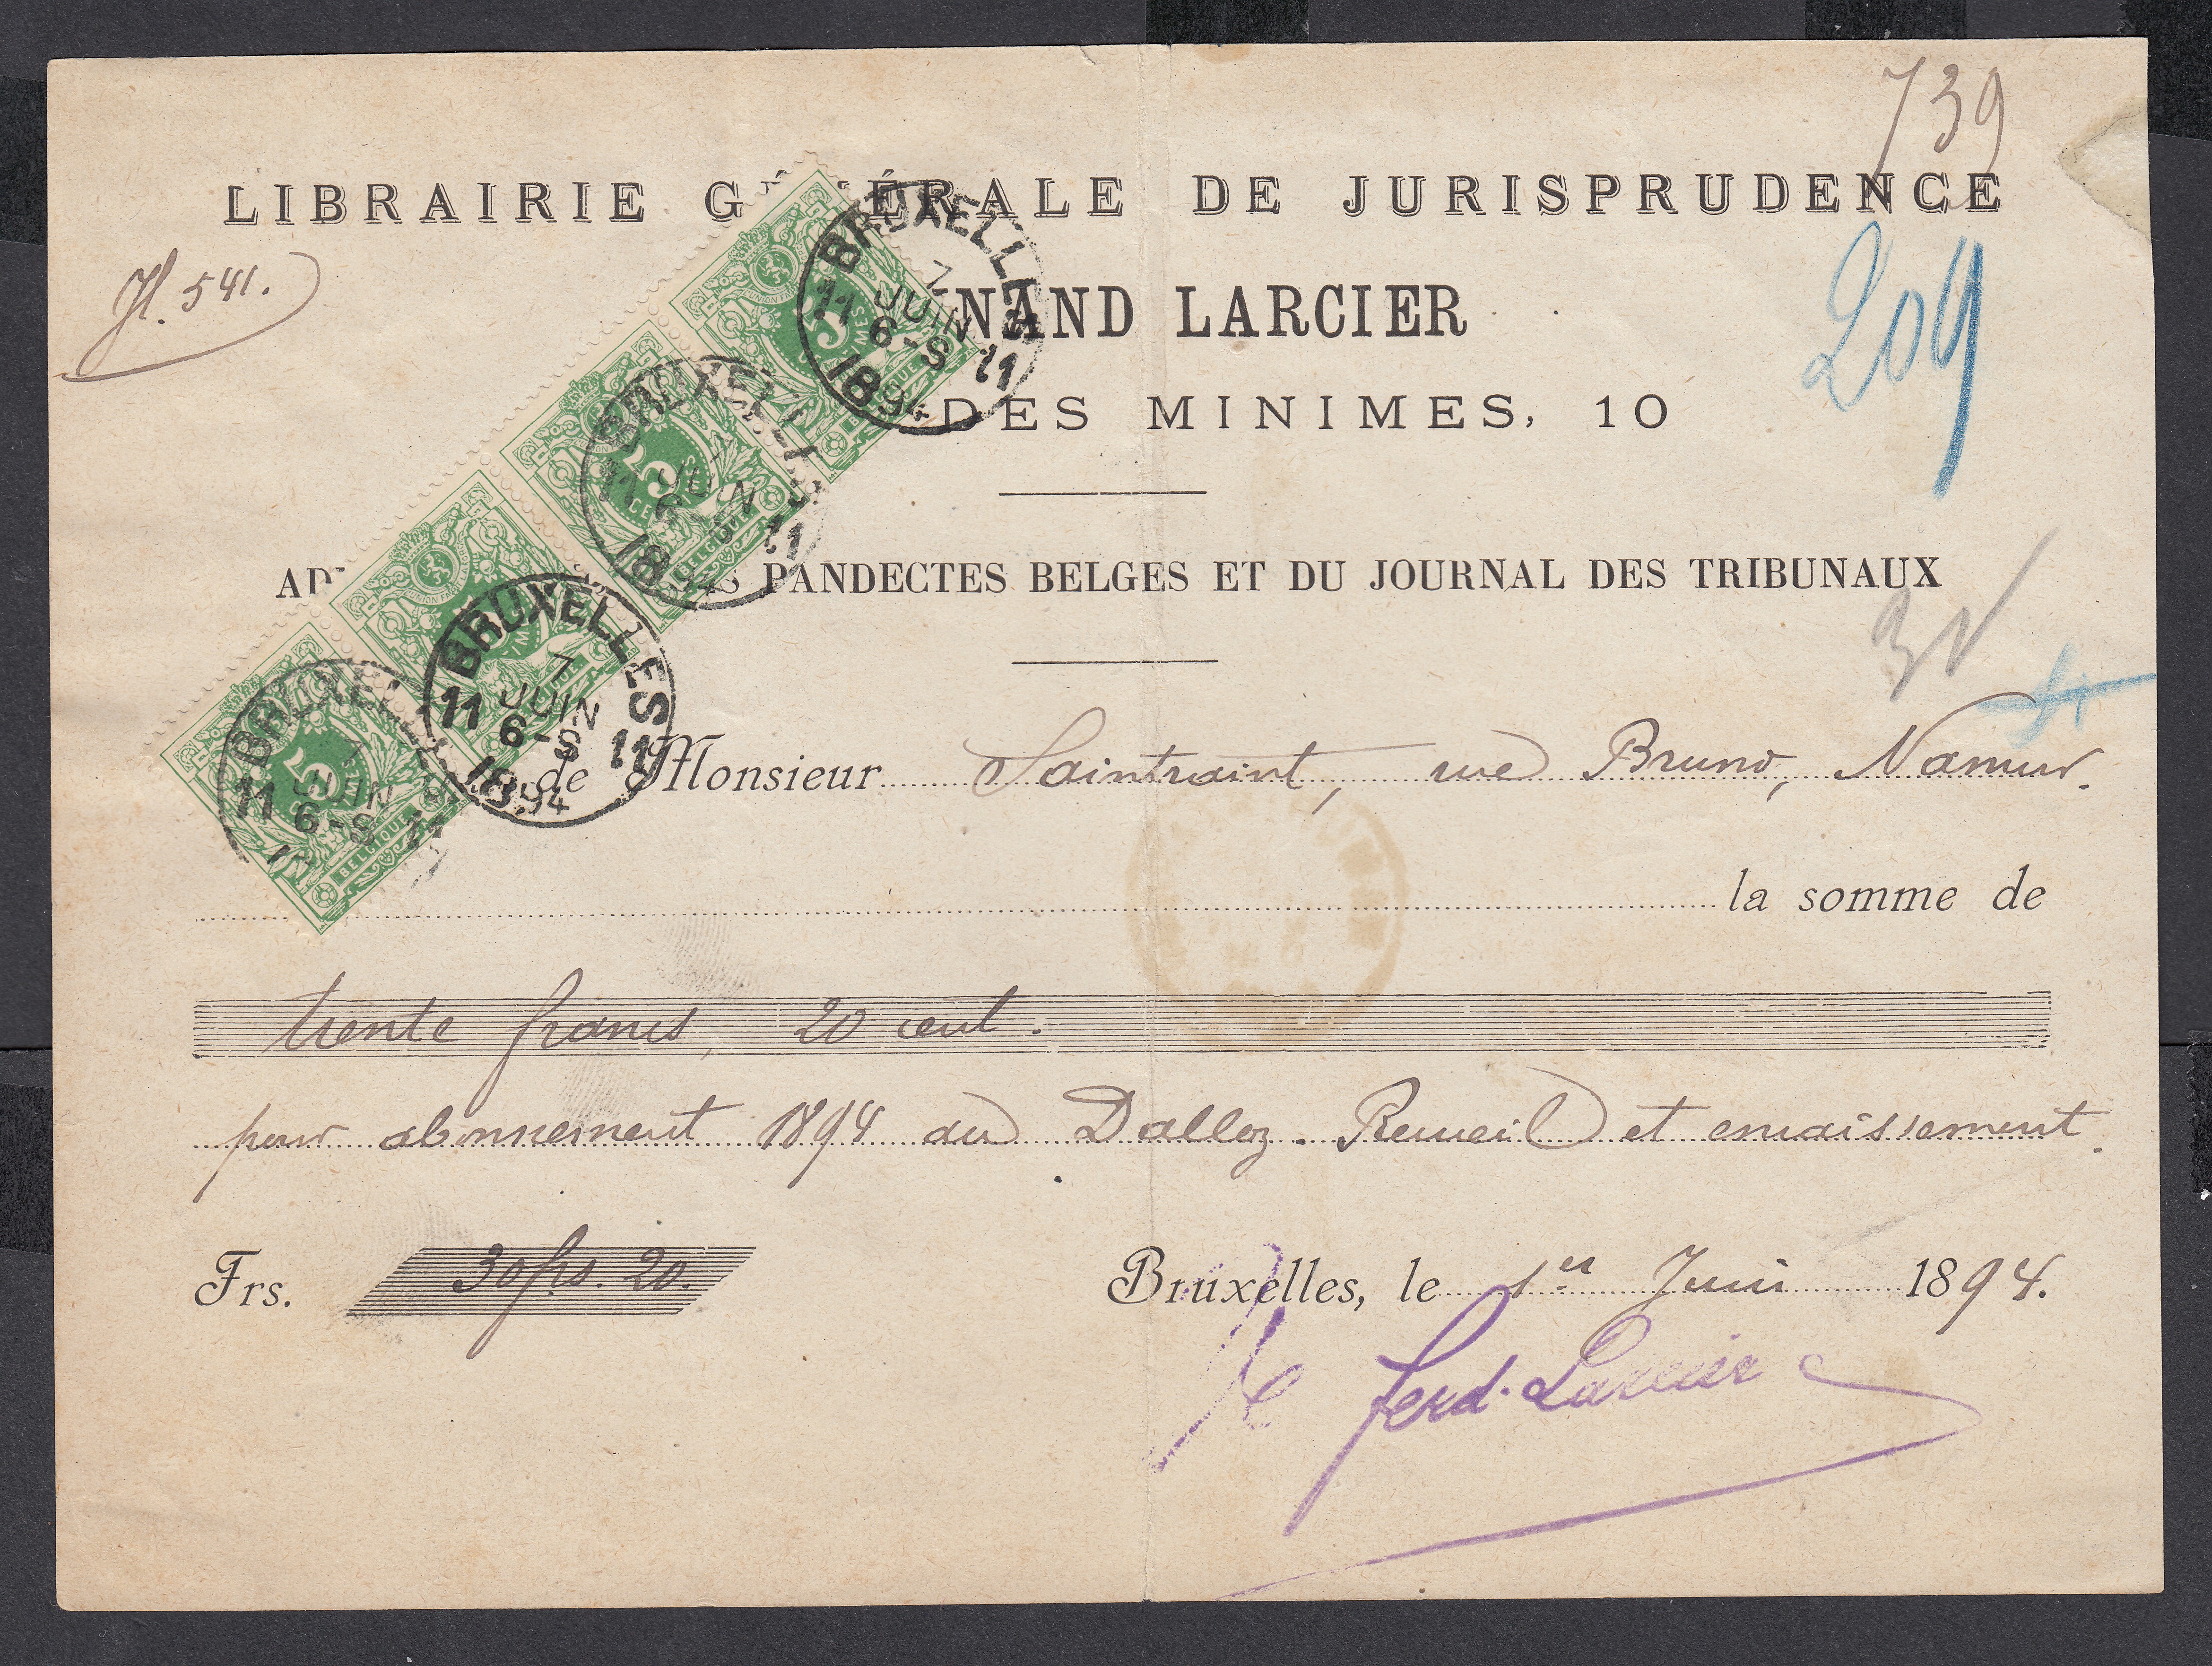 739
LIBRAIRIE GÉNÉRALE DE JURISPRUDENCE
Jl. 541.
209
NAND LARCIER
DES MINIMES, 10
PANDECTES BELGES ET DU JOURNAL DES TRIBUNAUX
BRUXELLES 11 7 JUIN 6-S 11 1894
BRUXELLES 11 JUIN 11 189
BRUXELLES 11 7 JUIN 6-S 11 1894
BRUXEL 11 7 JUIN 6-S
5 CENTIMES BELGIQUE
5 BELGIQUE
BELGIQUE
5 BELGIQUE
de Monsieur Saintraint, rue Bruno, Namur.
la somme de
trente francs, 20 cent.
pour abonnement 1894 au Dalloz. Recueil et encaissement.
Frs. 30 frs. 20. Bruxelles, le 1er Juin 1894.
Ferd. Larcier